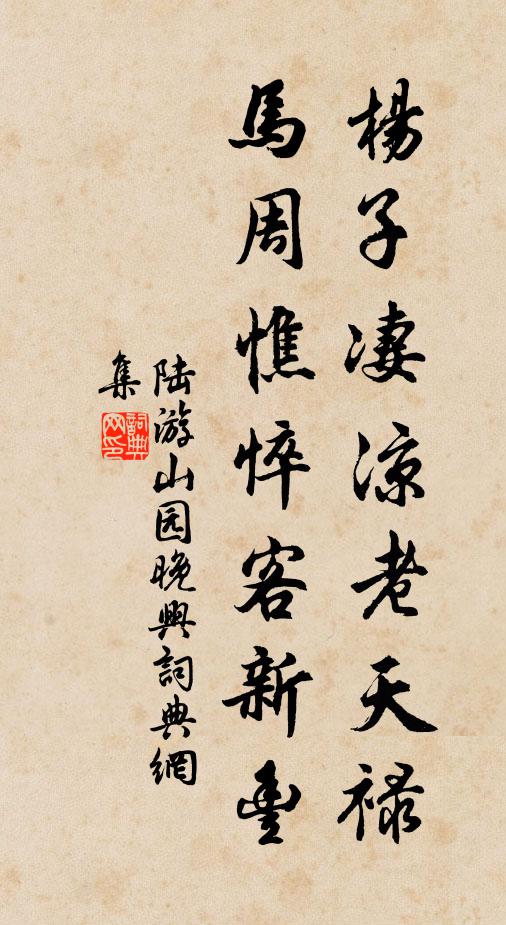 楊子凄涼老天禄
馬周憔悴客新豐
陆游山园晚興詞典網
集
詞典网印